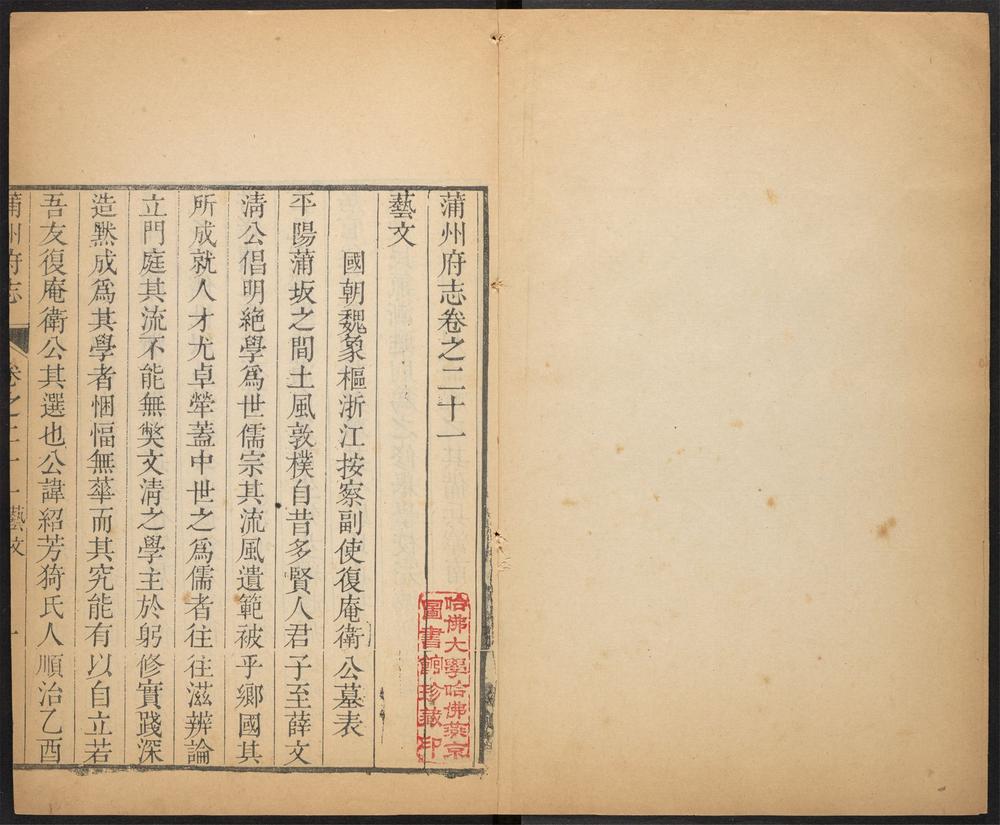 蒲州府志卷之二十一
藝文
國朝魏象樞浙江按察副使復庵衛公墓表
平陽蒲坂之間土風敦樸自昔多賢人君子至薛文
淸公倡明絶學爲世儒宗其流風遺範被乎鄉國其
所成就人才尤卓犖蓋中世之爲儒者往往滋辨論
立門庭其流不能無獘文淸之學主於躬修實踐深
造黙成爲其學者悃愊無華而其究能有以自立若
吾友復庵衛公其選也公諱紹芳猗氏人順治乙酉
蒲州府志
卷之二十一 藝文
一
哈佛大學哈佛燕京
圖書館珍藏印